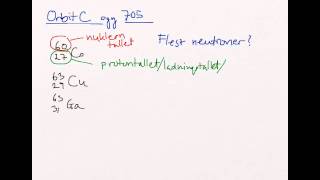 Orbit C opg 705
nukleon
tallet
Flest neutroner?
60
27 Co
protontallet/ladningstallet/
63
29 Cu
63
31 Ga